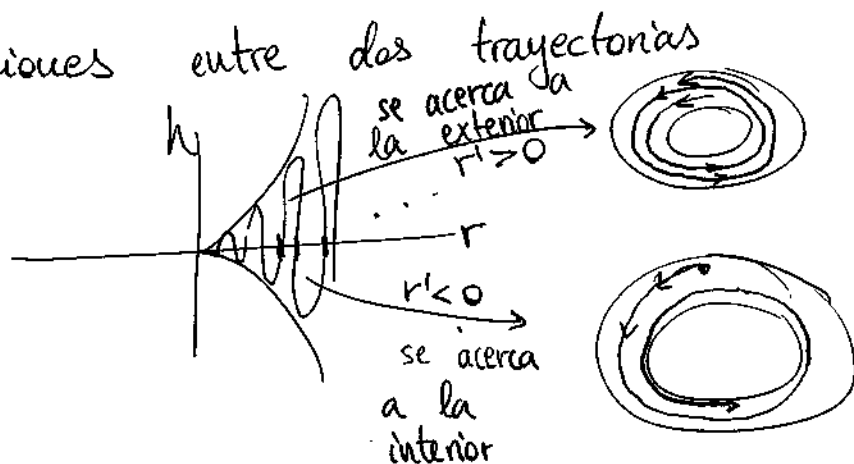 iones entre dos trayectorias
h
se acerca a
la exterior
r' > 0
. . .
r
r' < 0
se acerca
a la
interior